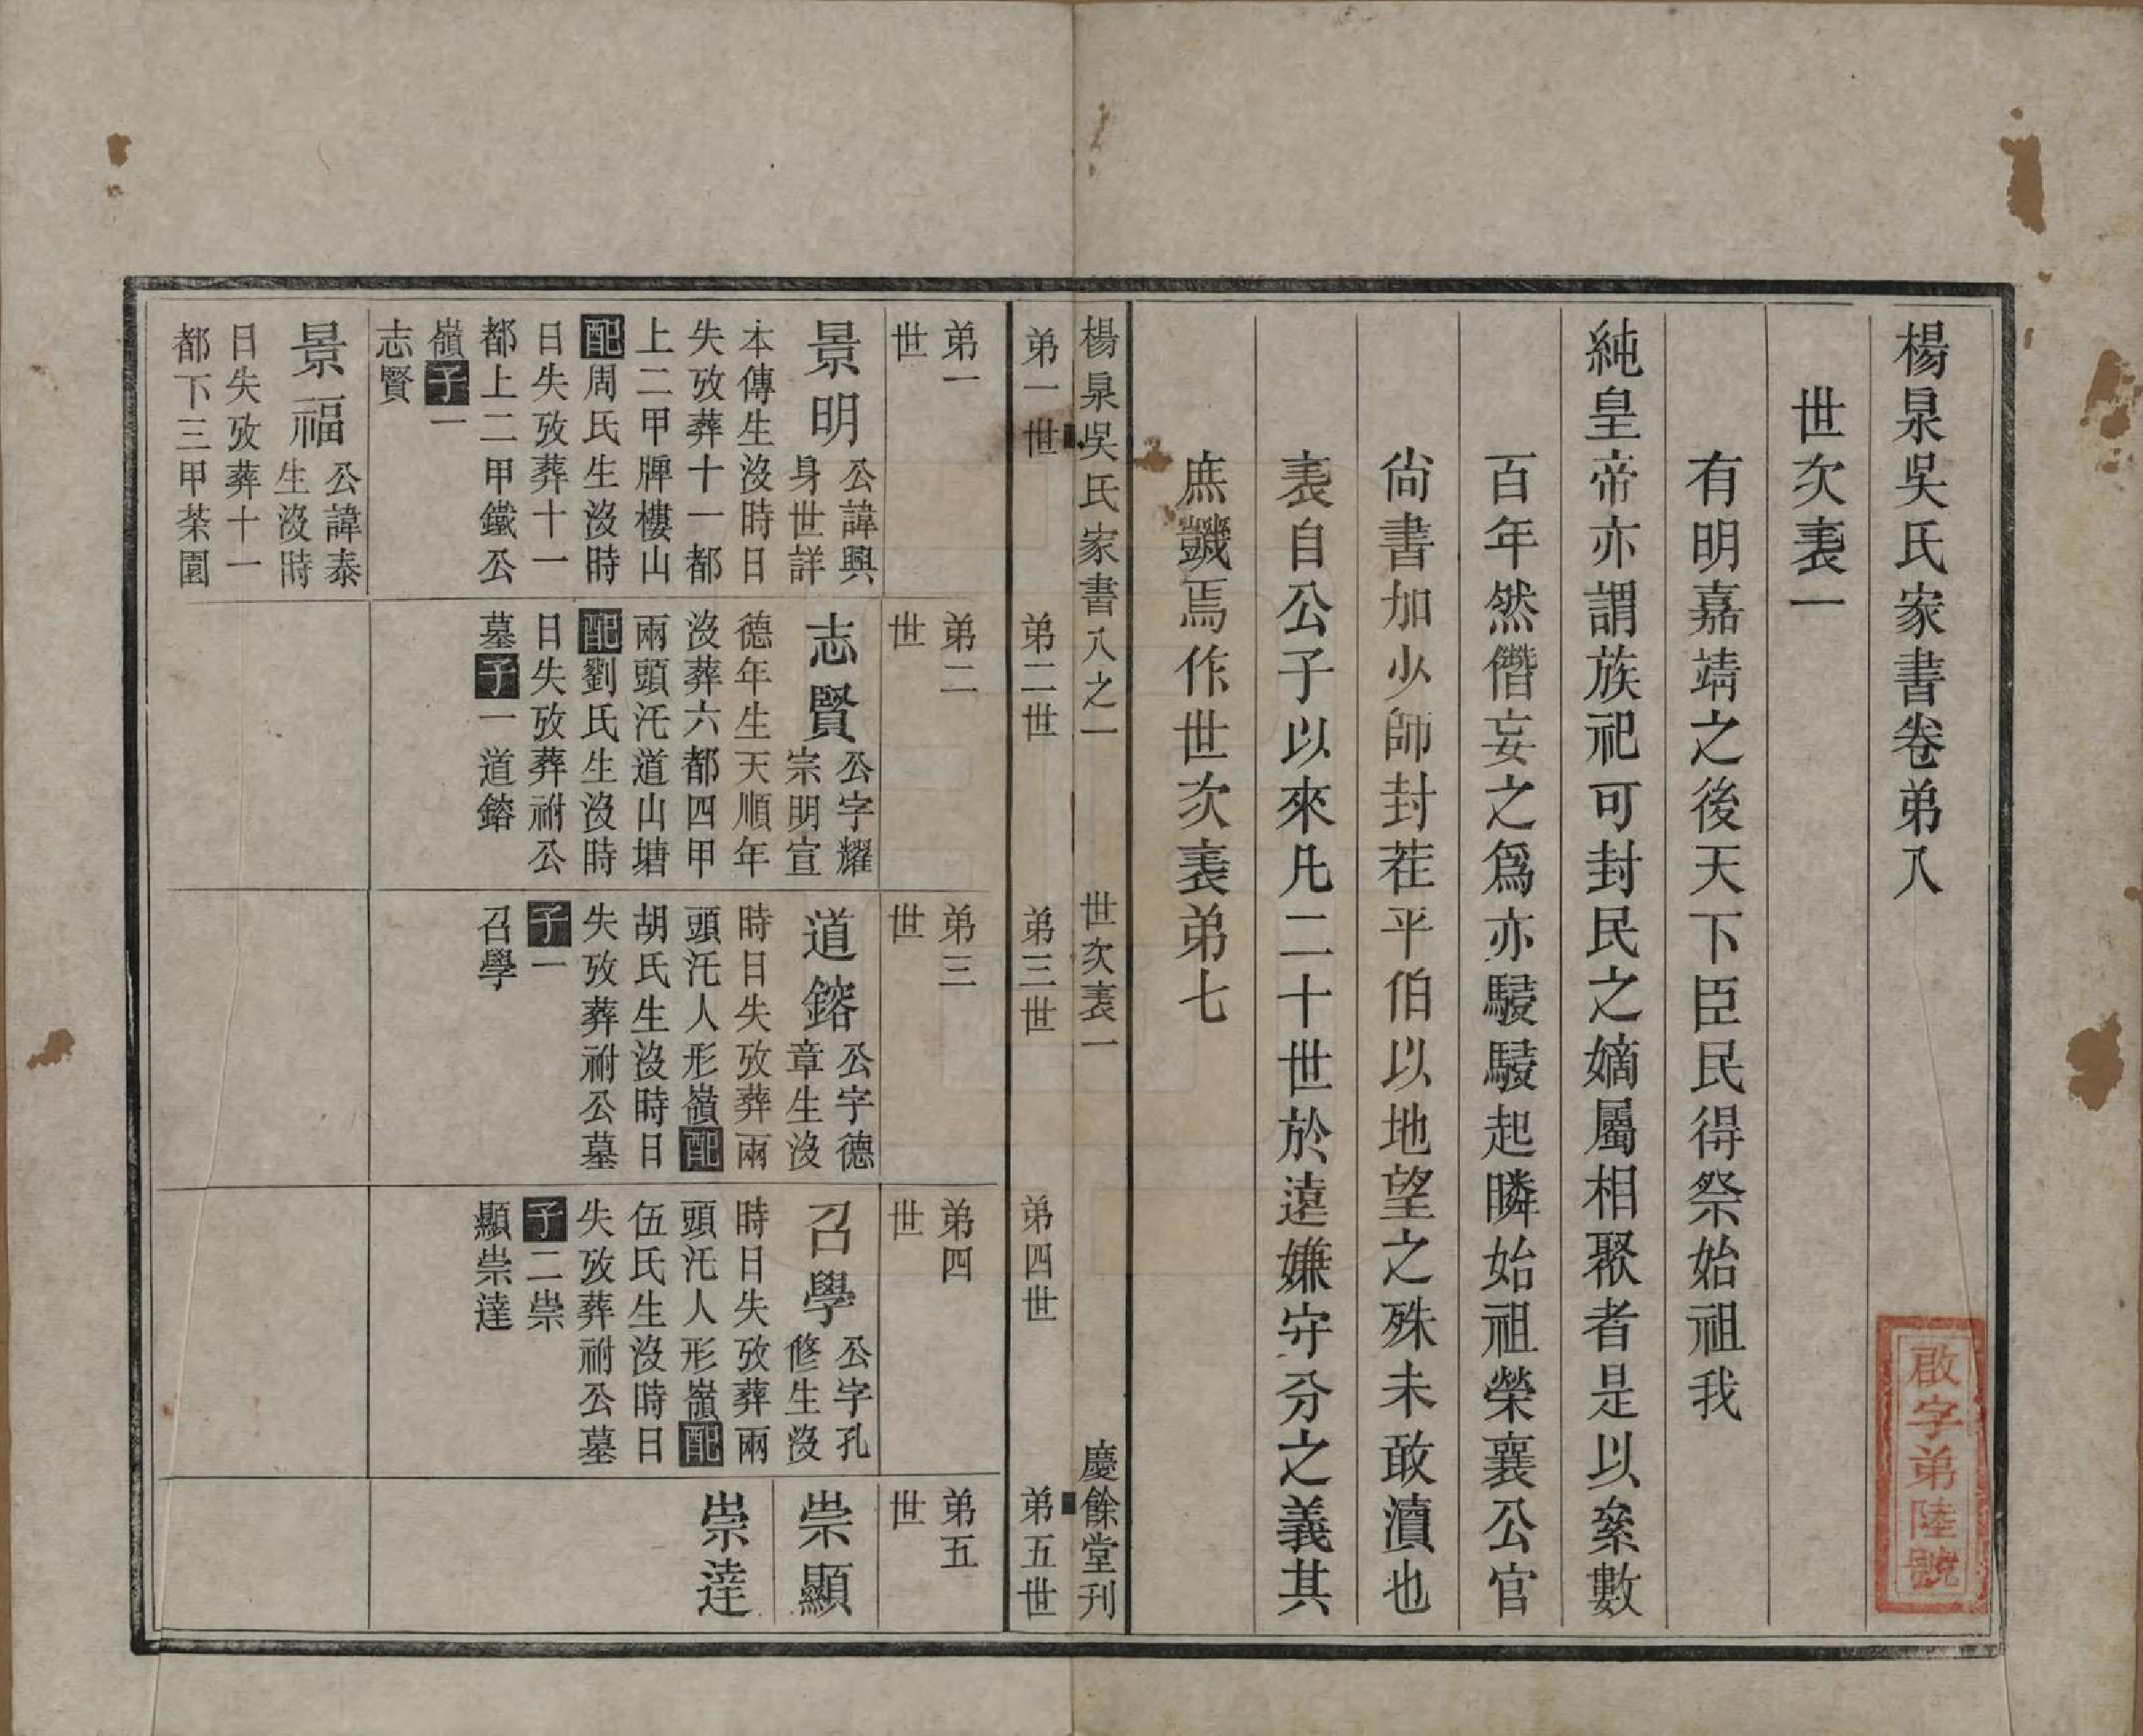 楊泉吳氏家書卷弟八
世次表一
有明嘉靖之後天下臣民得祭始祖我
純皇帝亦謂族祀可封民之嫡屬相聚者是以絫數
百年然僭妄之爲亦駸駸起疄始祖榮襄公官
尙書加少師封茬平伯以地望之殊未敢瀆也
表自公子以來凡二十世於遠嫌守分之義其
庶豑焉作世次表弟七
啟字弟陸號
楊泉吳氏家書八之一
世次表一
慶餘堂刊
弟一世
弟二世
弟三世
弟四世
弟五世
弟一
世
景明
公諱興
身世詳
本傳生沒時日
失攷葬十一都
上二甲牌樓山
配周氏生沒時
日失攷葬十一
都上二甲鐵公
嶺子一
志賢
景福
公諱泰
生沒時
日失攷葬十一
都下三甲茶園
弟二
世
志賢
公字耀
宗明宣
德年生天順年
沒葬六都四甲
兩頭汑道山塘
配劉氏生沒時
日失攷葬祔公
墓子一道鎔
弟三
世
道鎔
公字德
章生沒
時日失攷葬兩
頭汑人形嶺配
胡氏生沒時日
失攷葬祔公墓
子一
召學
弟四
世
召學
公字孔
修生沒
時日失攷葬兩
頭汑人形嶺配
伍氏生沒時日
失攷葬祔公墓
子二崇
顯崇達
弟五
世
崇顯
崇達